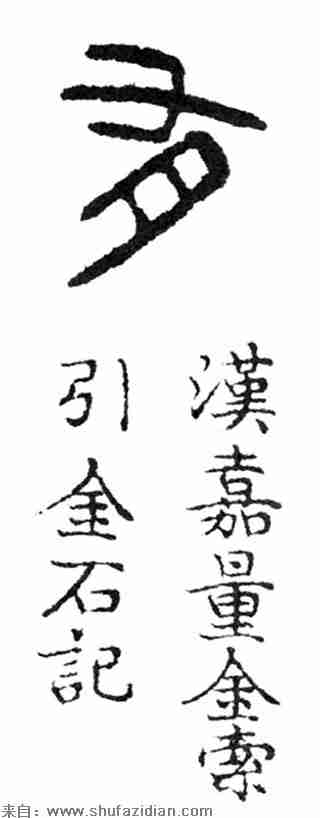 有
漢嘉量金索
引金石記
来自：www.shufazidian.com